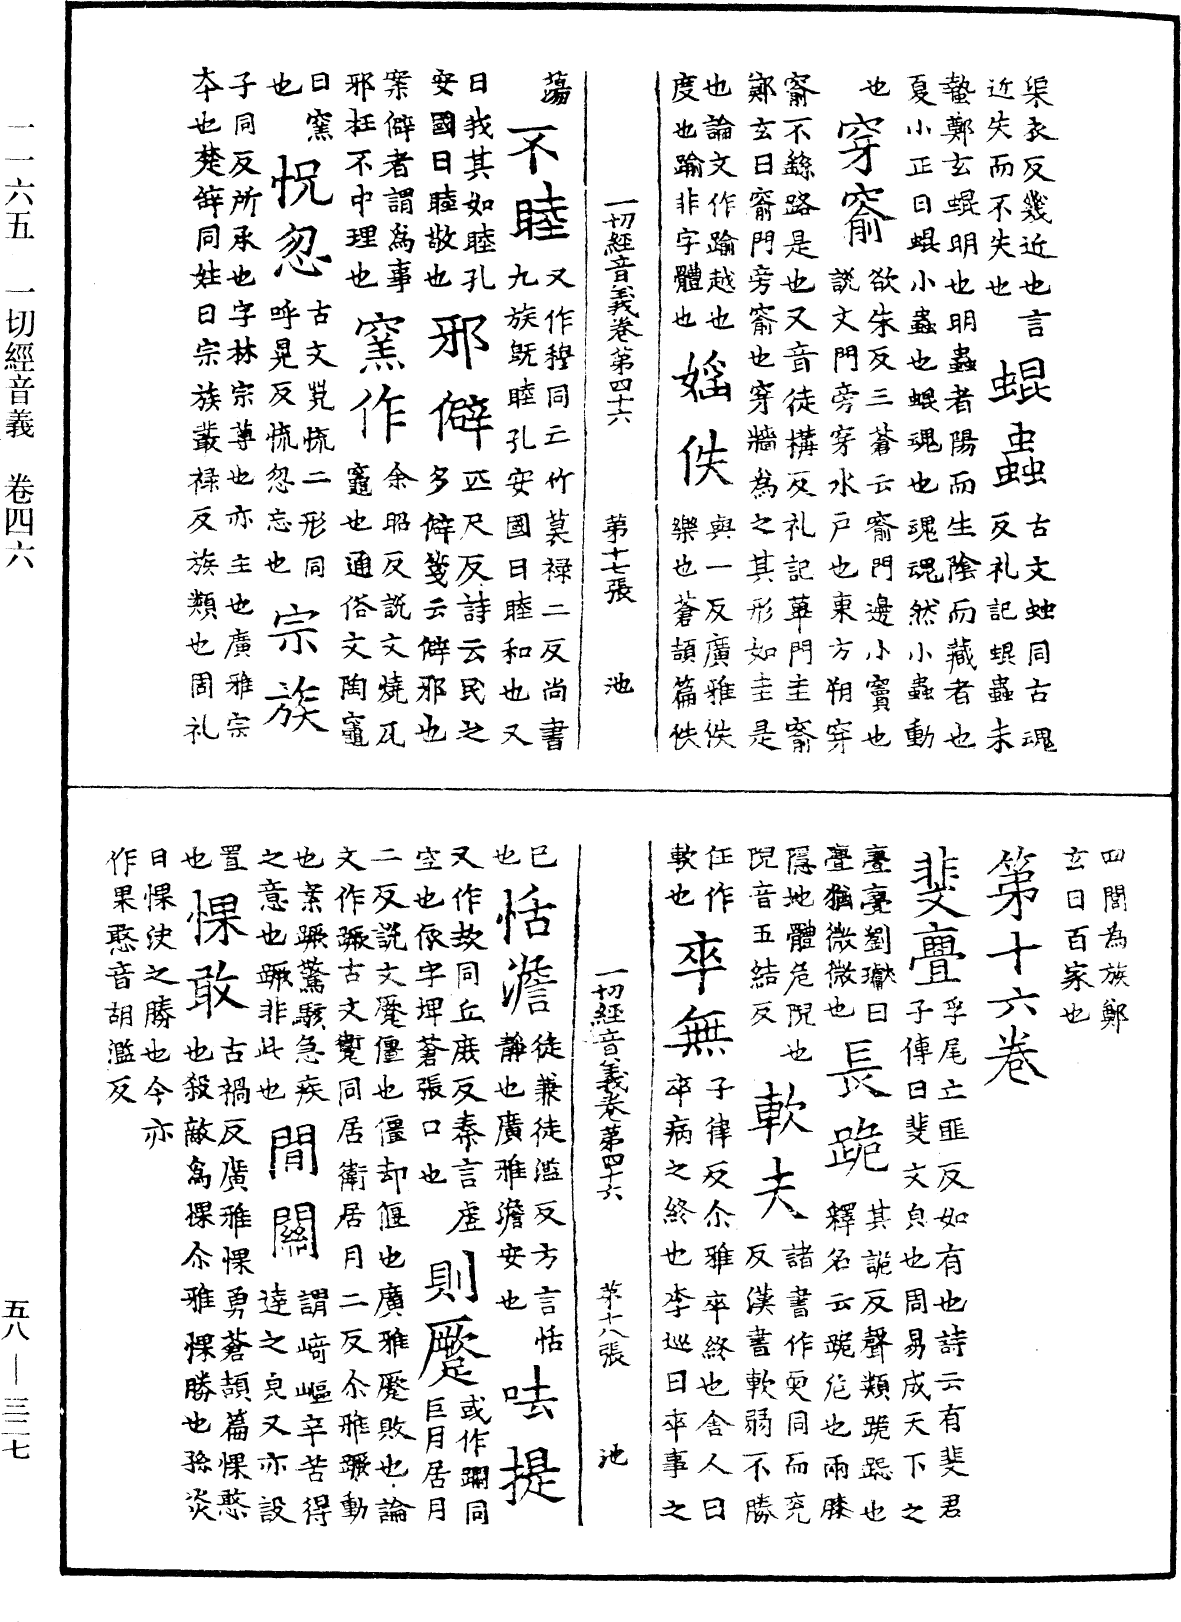 渠衣反幾近也言
近失而不失也
蜫蟲
古文䖵同古魂
反礼記蜫蟲未
蟄鄭玄蜫明也明蟲者陽而生陰而藏者也
夏小正曰蜫小蟲也蜫魂也魂魂然小蟲動
也
穿窬
欲朱反三蒼云窬門邊小竇也
說文門旁穿水戶也東方朔穿
窬不繇路是也又音徒構反礼記蓽門圭窬
鄭玄曰窬門旁窬也穿牆為之其形如圭是
也論文作踰越也
度也踰非字體也
婬佚
與一反廣雅佚
樂也蒼頡篇佚
一切經音義卷第四十六 第十七張 池
蕩
不睦
又作穆同亡竹莫祿二反尚書
九族旣睦孔安國曰睦和也又
曰我其如睦孔
安國曰睦敬也
邪僻
匹尺反詩云民之
多僻箋云僻邪也
案僻者謂為事
邪枉不中理也
窯作
余昭反說文燒瓦
竈也通俗文陶竈
曰窯
也
怳忽
古文㷇㤺二形同
呼晃反㤺忽忘也
宗族
子同反所承也字林宗尊也亦主也廣雅宗
本也楚辭同姓曰宗族叢祿反族類也周礼
四閭為族鄭
玄曰百家也
第十六卷
斐亹
孚尾亡匪反如有也詩云有斐君
子傳曰斐文皃也周易成天下之
亹亹劉瓛曰
亹猶微微也
長跪
其詭反聲類跪跽也
釋名云跪危也兩膝
隱地體危陒也
陒音五結反
軟夫
諸書作耎同而兖
反漢書軟弱不勝
任作
軟也
卒無
子律反尒雅卒終也舍人曰
卒病之終也李巡曰卒事之
一切經音義卷第四十六 第十八張 池
已
也
恬澹
徒兼徒濫反方言恬
靜也廣雅澹安也
呿提
又作㰦同丘庶反秦言虛
空也依字埤蒼張口也
則蹷
或作𨇮同
巨月居月
二反說文蹷僵也僵却偃也廣雅蹷敗也論
文作蹶古文𨇨同居衛居月二反尒雅蹶動
也案蹶驚駭急疾
之意也蹶非此也
閒關
謂崎嶇辛苦得
達之皃又亦設
置
也
惈敢
古禍反廣雅惈勇蒼頡篇惈憨
也殺敵為惈尒雅惈勝也孫炎
曰惈决之勝也今亦
作果憨音胡濫反
一一六五 一切經音義 卷四六
五八—三二七